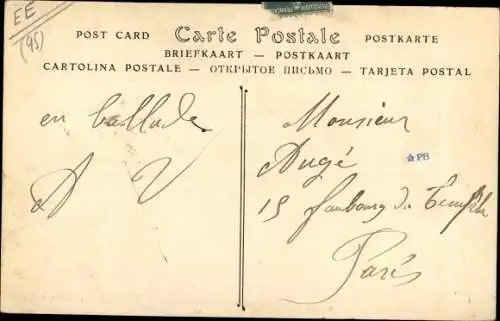 EE
(95)
POST CARD Carte Postale POSTKARTE
BRIEFKAART — POSTKAART
CARTOLINA POSTALE — ОТКРЫТОЕ ПИСЬМО — TARJETA POSTAL
en ballade
A V
Monsieur
Augé
PB
15 faubourg du Temple
Paris